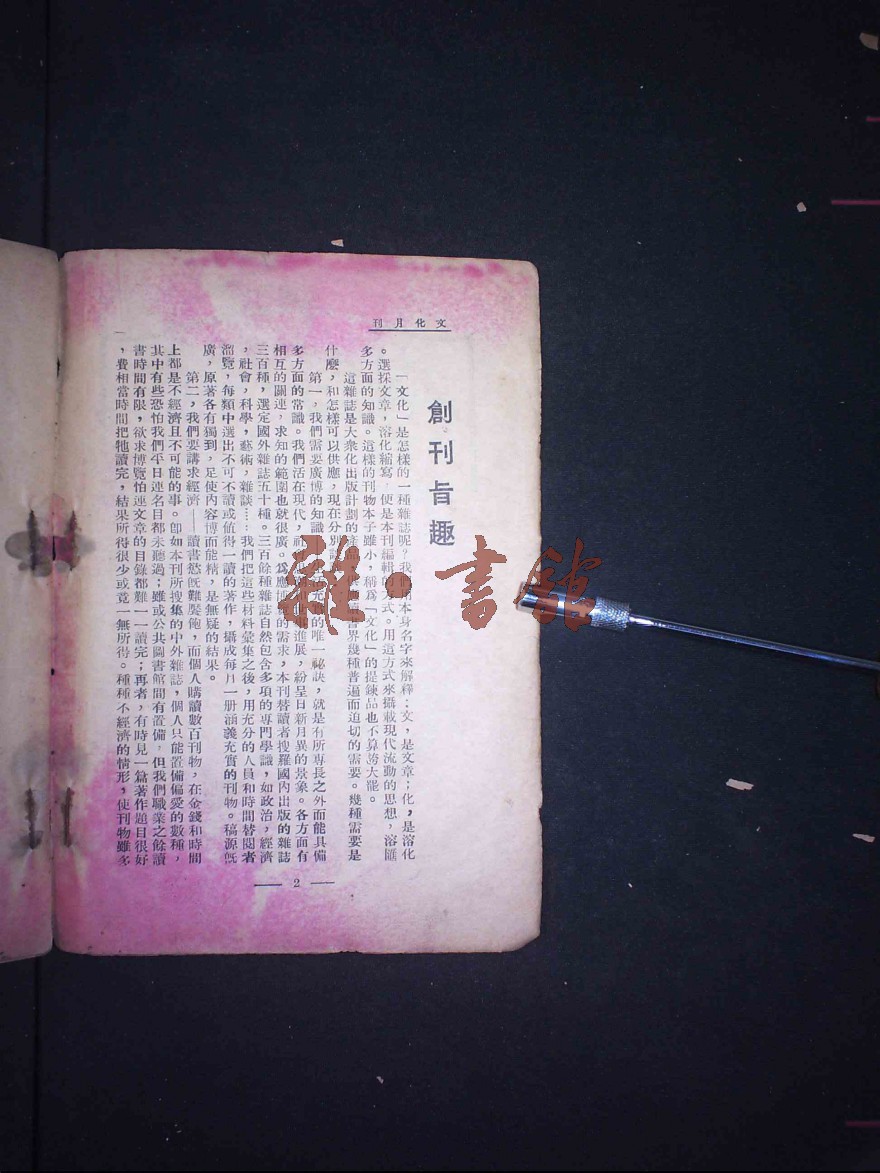 文化月刊
創刊旨趣
「文化」是怎樣的一種雜誌呢?我們用本身名字來解釋:文,是文章;化,是溶化
。選採文章,溶化縮寫,便是本刊編輯的方式。用這方式來攝載現代流動的思想,溶匯
多方面的知識。這樣的刊物本子雖小,稱爲「文化」的提鍊品也不算誇大罷。
這雜誌是大衆化出版計劃的產品 讀書界幾種普遍而迫切的需要。幾種需要是
什麼,和怎樣可以供應,現在分別
第一,我們需要廣博的知識 的唯一祕訣,就是有所專長之外而能具備
多方面的常識。我們活在現代,社 進展,紛呈日新月異的景象。各方面有
相互的關連,求知的範圍也就很廣。爲應博 的需求,本刊替讀者搜羅國內出版的雜誌
三百種,選定國外雜誌五十種。三百餘種雜誌自然包含多項的專門學識,如政治,經濟
,社會,科學,藝術,雜談……我們把這些材料彙集之後,用充分的人員和時間替閱者
瀏覽,每類中選出不可不讀或值得一讀的著作,攝成每月一册涵義充實的刊物。稿源既
廣,原著各有獨到,足使內容博而能精,是無疑的結果。
第二,我們要講求經濟——讀書慾既難饜飽,而個人購讀數百刊物,在金錢和時間
上都是不經濟且不可能的事。卽如本刊所搜集的中外雜誌,個人只能置備偏愛的數種,
其中有些恐怕我們平日連名目都未聽過;雖或公共圖書館間有置備,但我們職業之餘讀
書時間有限,欲求博覽怕連文章的目錄都難一一讀完;再者,有時見一篇著作題目很好
,費相當時間把牠讀完,結果所得很少或竟一無所得。種種不經濟的情形,使刊物雖多
— 2 —
雜·書館